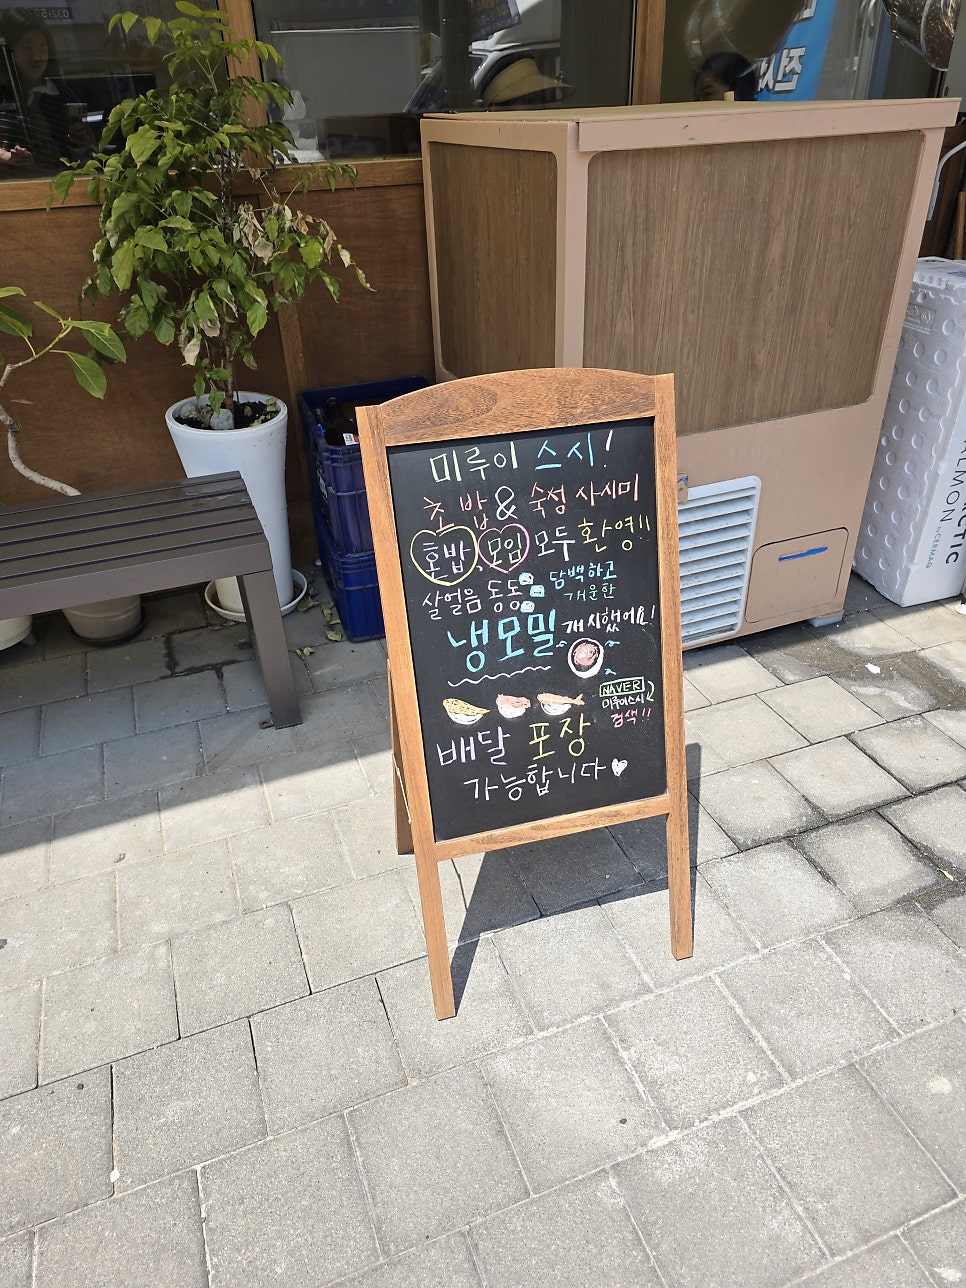 미루이 스시!
초밥 & 숙성 사시미
혼밥, 모임 모두 환영!!
살얼음 동동 담백하고
개운한
냉모밀 개시했어요!
NAVER
미루이스시
검색!!
배달 포장
가능합니다
ARCTIC